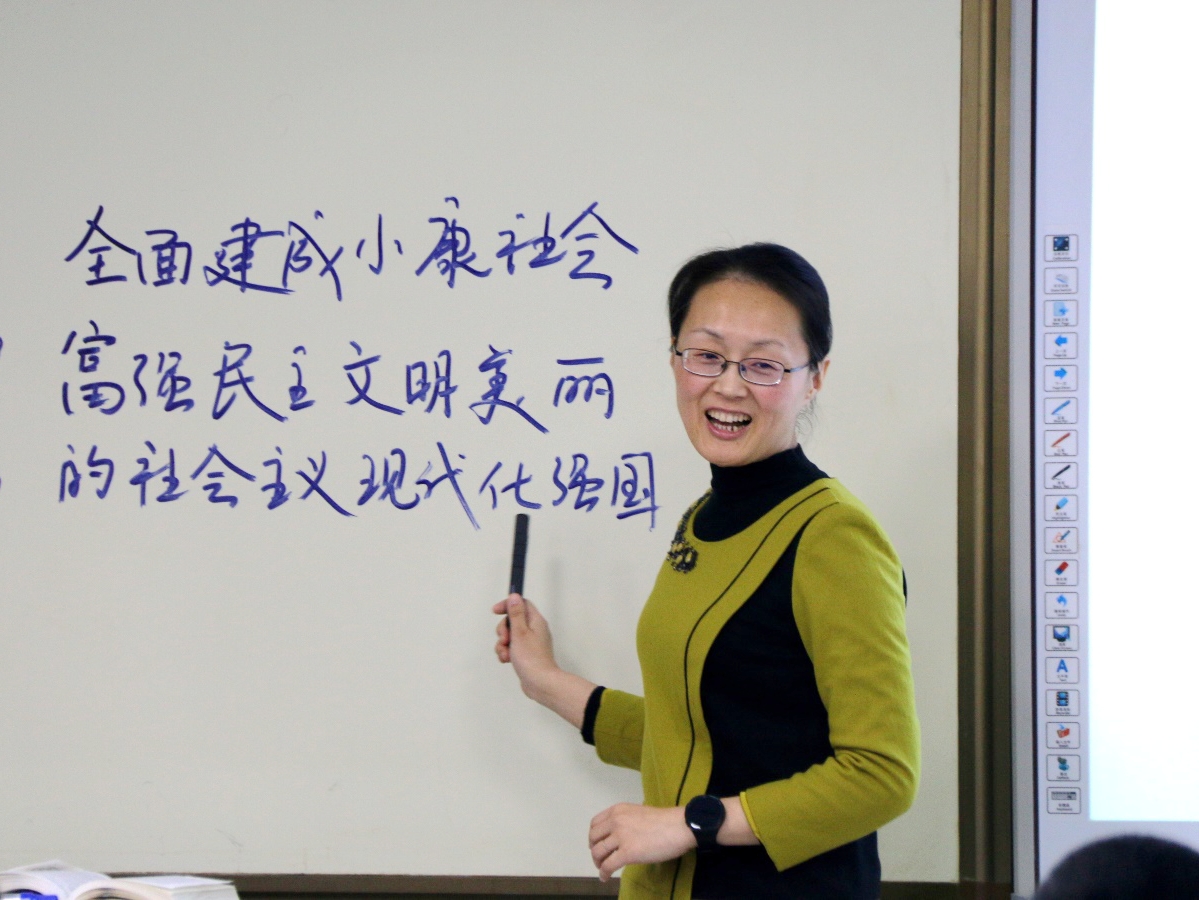 全面建成小康社会
富强民主文明美丽
的社会主义现代化强国
A